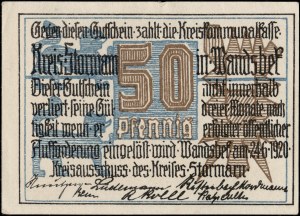 Gegen diesen Gutschein zahlt die Kreiskommunalkasse
Kreis Stormarn in Wandsbek
50
Pfennig
Dieser Gutschein nicht innerhalb
verliert seine Gül dreier Monate nach
tigkeit wenn er erfolgter öffentlicher
Aufforderung eingelöst wird Wandsbek am 24.6.1920
Kreisausschuss des Kreises Stormarn